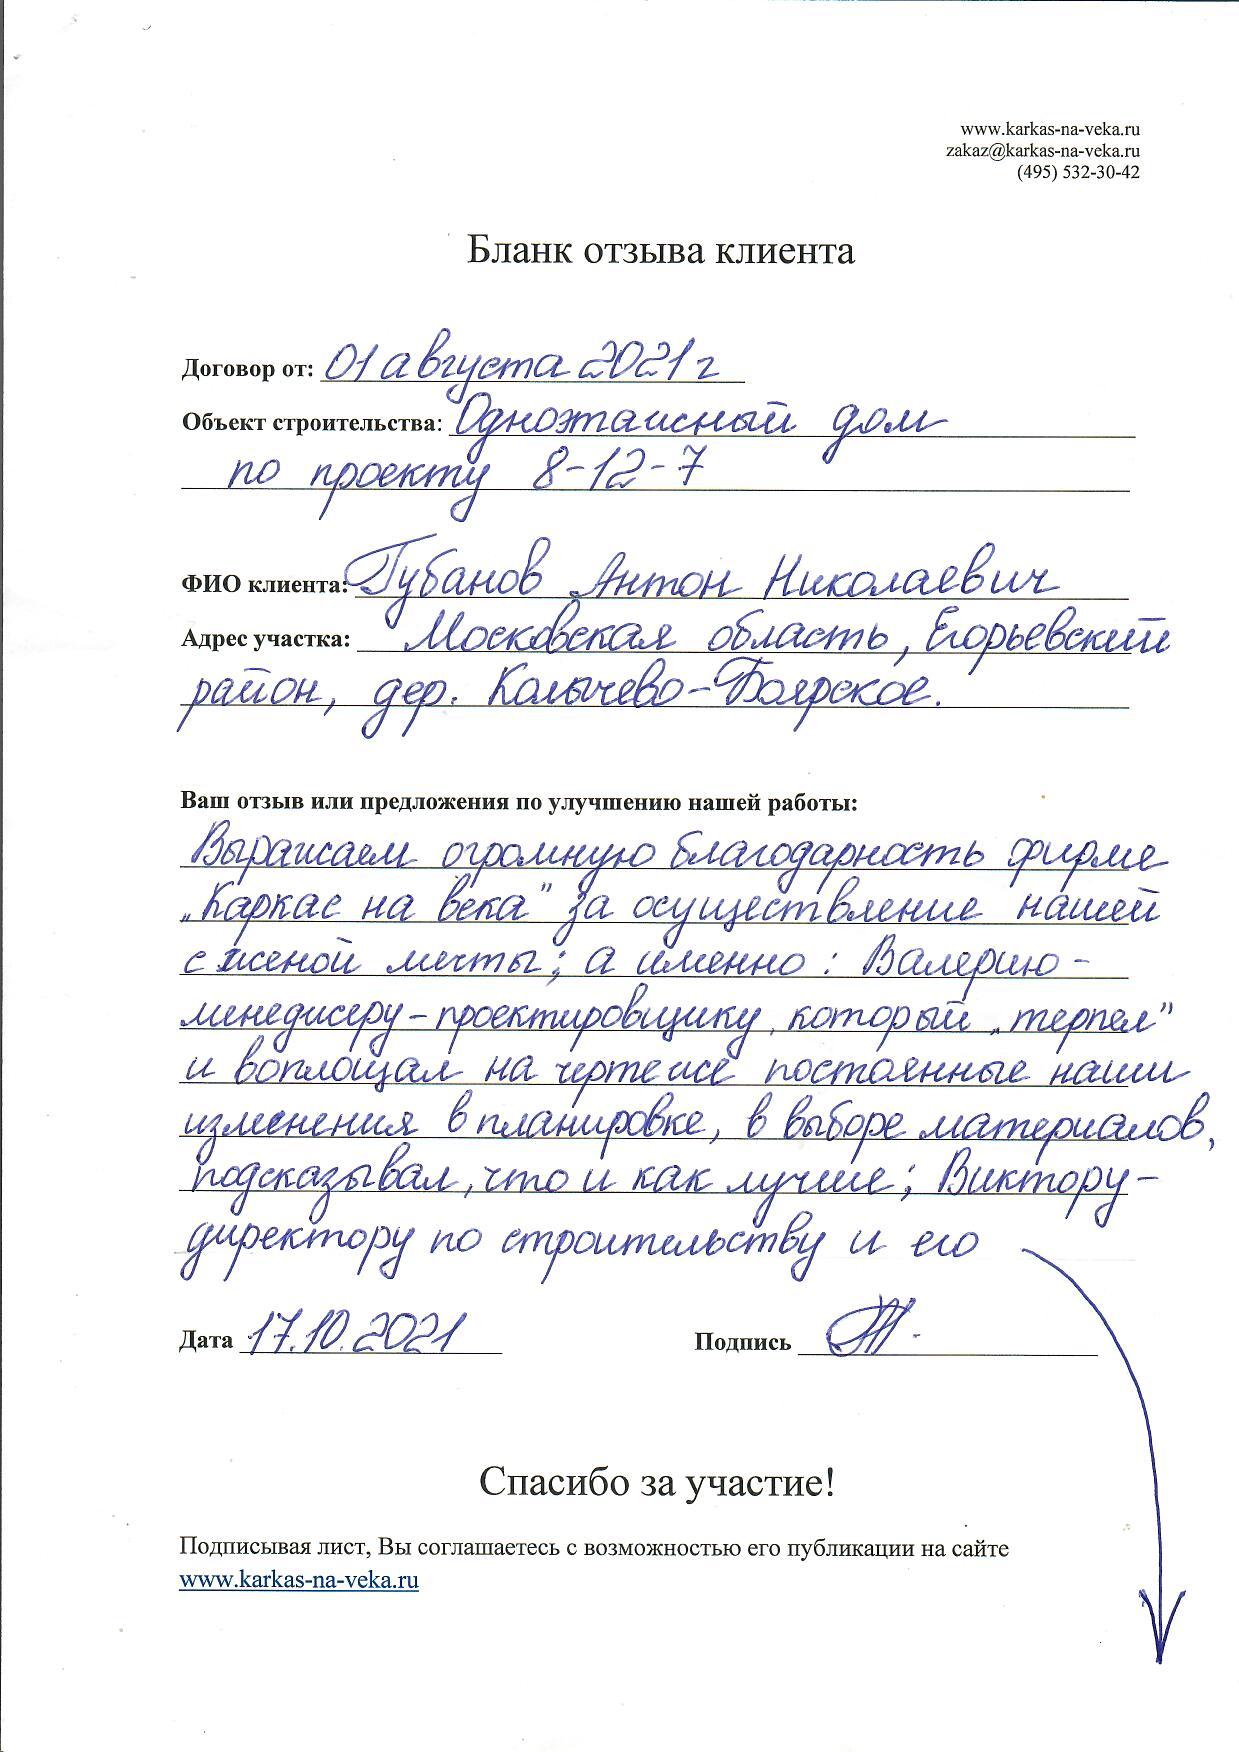 www.karkas-na-veka.ru
zakaz@karkas-na-veka.ru
(495) 532-30-42
Бланк отзыва клиента
Договор от: 01 августа 2021 г
Объект строительства: Одноэтажный дом
по проекту 8-12-7
ФИО клиента: Губанов Антон Николаевич
Адрес участка: Московская область, Егорьевский
район, дер. Колычево-Боярское.
Ваш отзыв или предложения по улучшению нашей работы:
Выражаем огромную благодарность фирме
„Каркас на века" за осуществление нашей
с женой мечты; а именно: Валерию -
менеджеру-проектировщику, который „терпел"
и воплощал на чертеже постоянные наши
изменения в планировке, в выборе материалов,
подсказывал, что и как лучше; Виктору-
директору по строительству и его
Дата 17.10.2021 Подпись
Спасибо за участие!
Подписывая лист, Вы соглашаетесь с возможностью его публикации на сайте
www.karkas-na-veka.ru